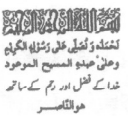 بسم اللہ الرحمن الرحیم
نحمدہ و نصلی علی رسولہ الکریم
وعلی عبدہ المسیح الموعود
خدا کے فضل اور رحم کے ساتھ
ھو الناصر